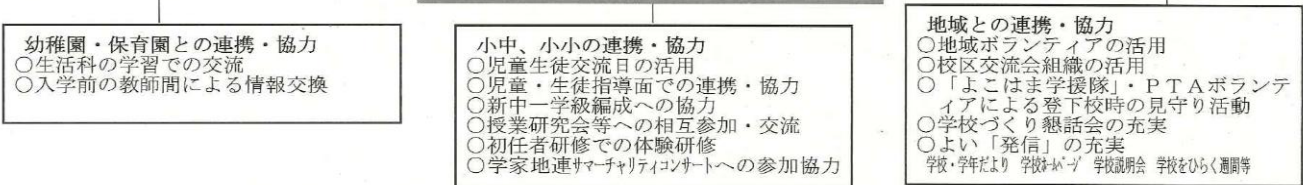 幼稚園・保育園との連携・協力
○生活科の学習での交流
○入学前の教師間による情報交換
小中、小小の連携・協力
○児童生徒交流日の活用
○児童・生徒指導面での連携・協力
○新中一学級編成への協力
○授業研究会等への相互参加・交流
○初任者研修での体験研修
○学家地連ｻﾏｰﾁｬﾘﾃｨｺﾝｻｰﾄへの参加協力
地域との連携・協力
○地域ボランティアの活用
○校区交流会組織の活用
○「よこはま学援隊」・ＰＴＡボランテ
ィアによる登下校時の見守り活動
○学校づくり懇話会の充実
○よい「発信」の充実
学校・学年だより 学校ﾎｰﾑﾍﾟｰｼﾞ 学校説明会 学校をひらく週間等